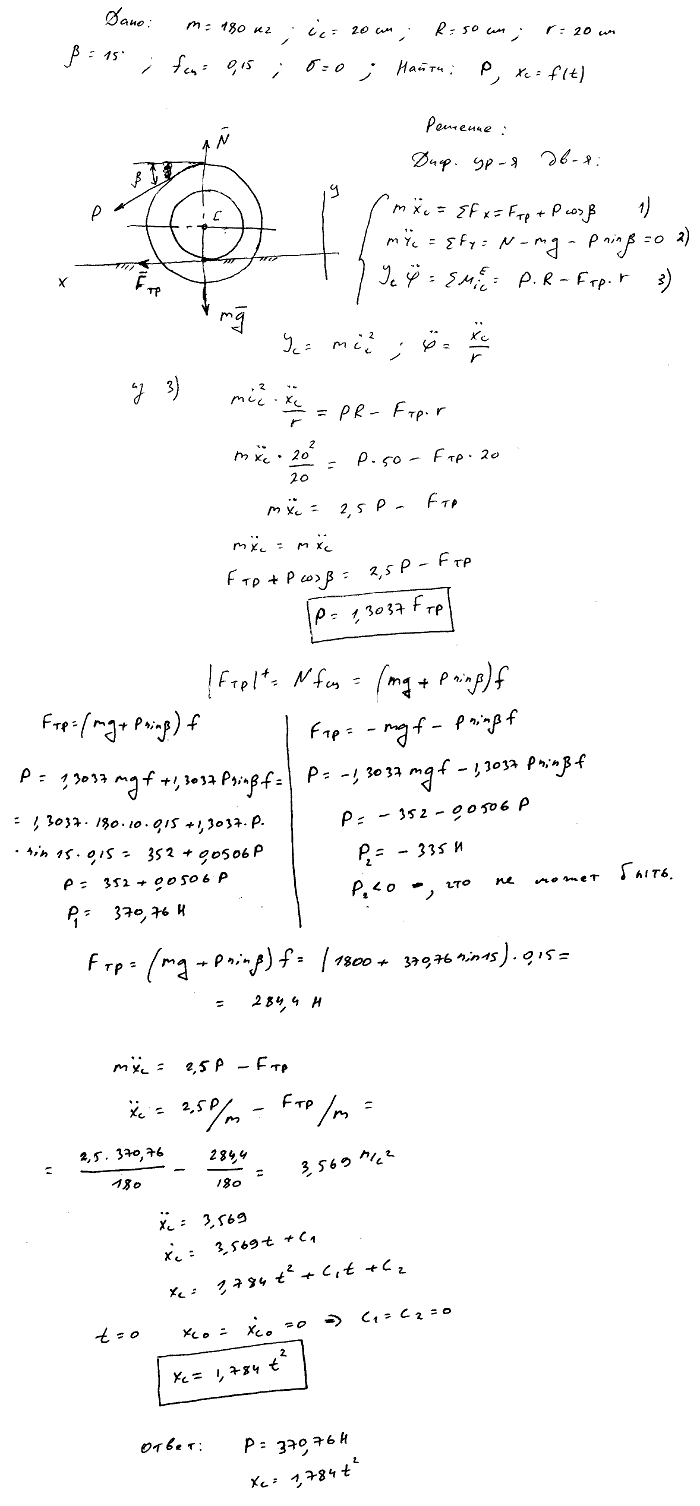 Дано: m = 180 кг ; i_c = 20 см ; R = 50 см ; r = 20 см
β = 15° ; f_сц = 0,15 ; δ = 0 ; Найти: P, x_c = f(t)
Решение:
Диф. ур-я дв-я:
N̄
β
P
C
y
x
F̄_тр
mḡ
mẍ_c = ΣF_x = F_тр + P cosβ 1)
mÿ_c = ΣF_y = N - mg - P sinβ = 0 2)
J_c φ̈ = ΣM_ic^E = P·R - F_тр·r 3)
J_c = m i_c² ; φ̈ = ẍ_c/r
из 3) m i_c² · ẍ_c/r = PR - F_тр·r
mẍ_c · 20²/20 = P·50 - F_тр·20
mẍ_c = 2,5 P - F_тр
mẍ_c = mẍ_c
F_тр + P cosβ = 2,5 P - F_тр
P = 1,3037 F_тр
|F_тр|⁺ = N f_сц = (mg + P sinβ) f
F_тр = (mg + P sinβ) f
P = 1,3037 mgf + 1,3037 P sinβ f =
= 1,3037·180·10·0,15 + 1,3037·P·
· sin 15·0,15 = 352 + 0,0506 P
P = 352 + 0,0506 P
P₁ = 370,76 Н
F_тр = - mgf - P sinβ f
P = -1,3037 mgf - 1,3037 P sinβ f
P = - 352 - 0,0506 P
P₂ = - 335 Н
P₂ < 0 -, что не может быть.
F_тр = (mg + P sinβ) f = (1800 + 370,76 sin15)·0,15 =
= 284,4 Н
mẍ_c = 2,5 P - F_тр
ẍ_c = 2,5P/m - F_тр/m =
= 2,5·370,76/180 - 284,4/180 = 3,569 м/с²
ẍ_c = 3,569
ẋ_c = 3,569t + C₁
x_c = 1,784 t² + C₁t + C₂
t = 0 x_c0 = ẋ_c0 = 0 ⇒ C₁ = C₂ = 0
x_c = 1,784 t²
Ответ: P = 370,76 Н
x_c = 1,784 t²